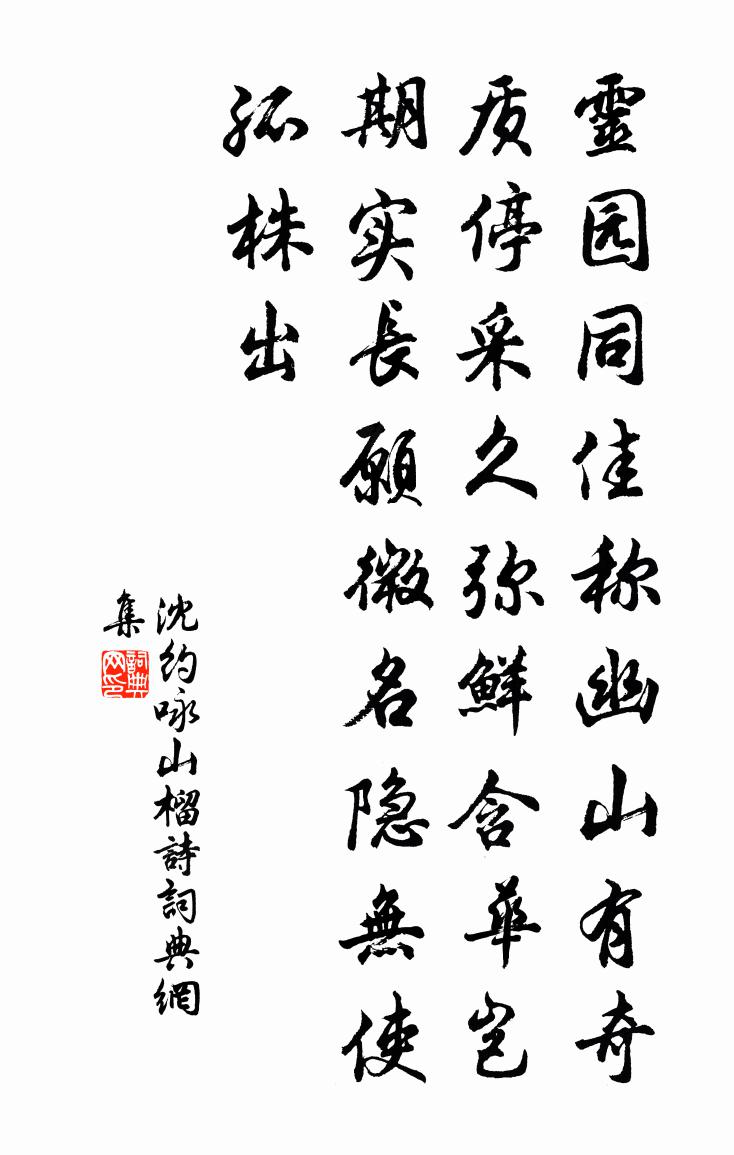 靈园同佳称幽山有奇
质停采久弥鮮含華岂
期实長願微名隐無使
孤株出
沈约咏山榴詩詞典網
集
詞典
网印